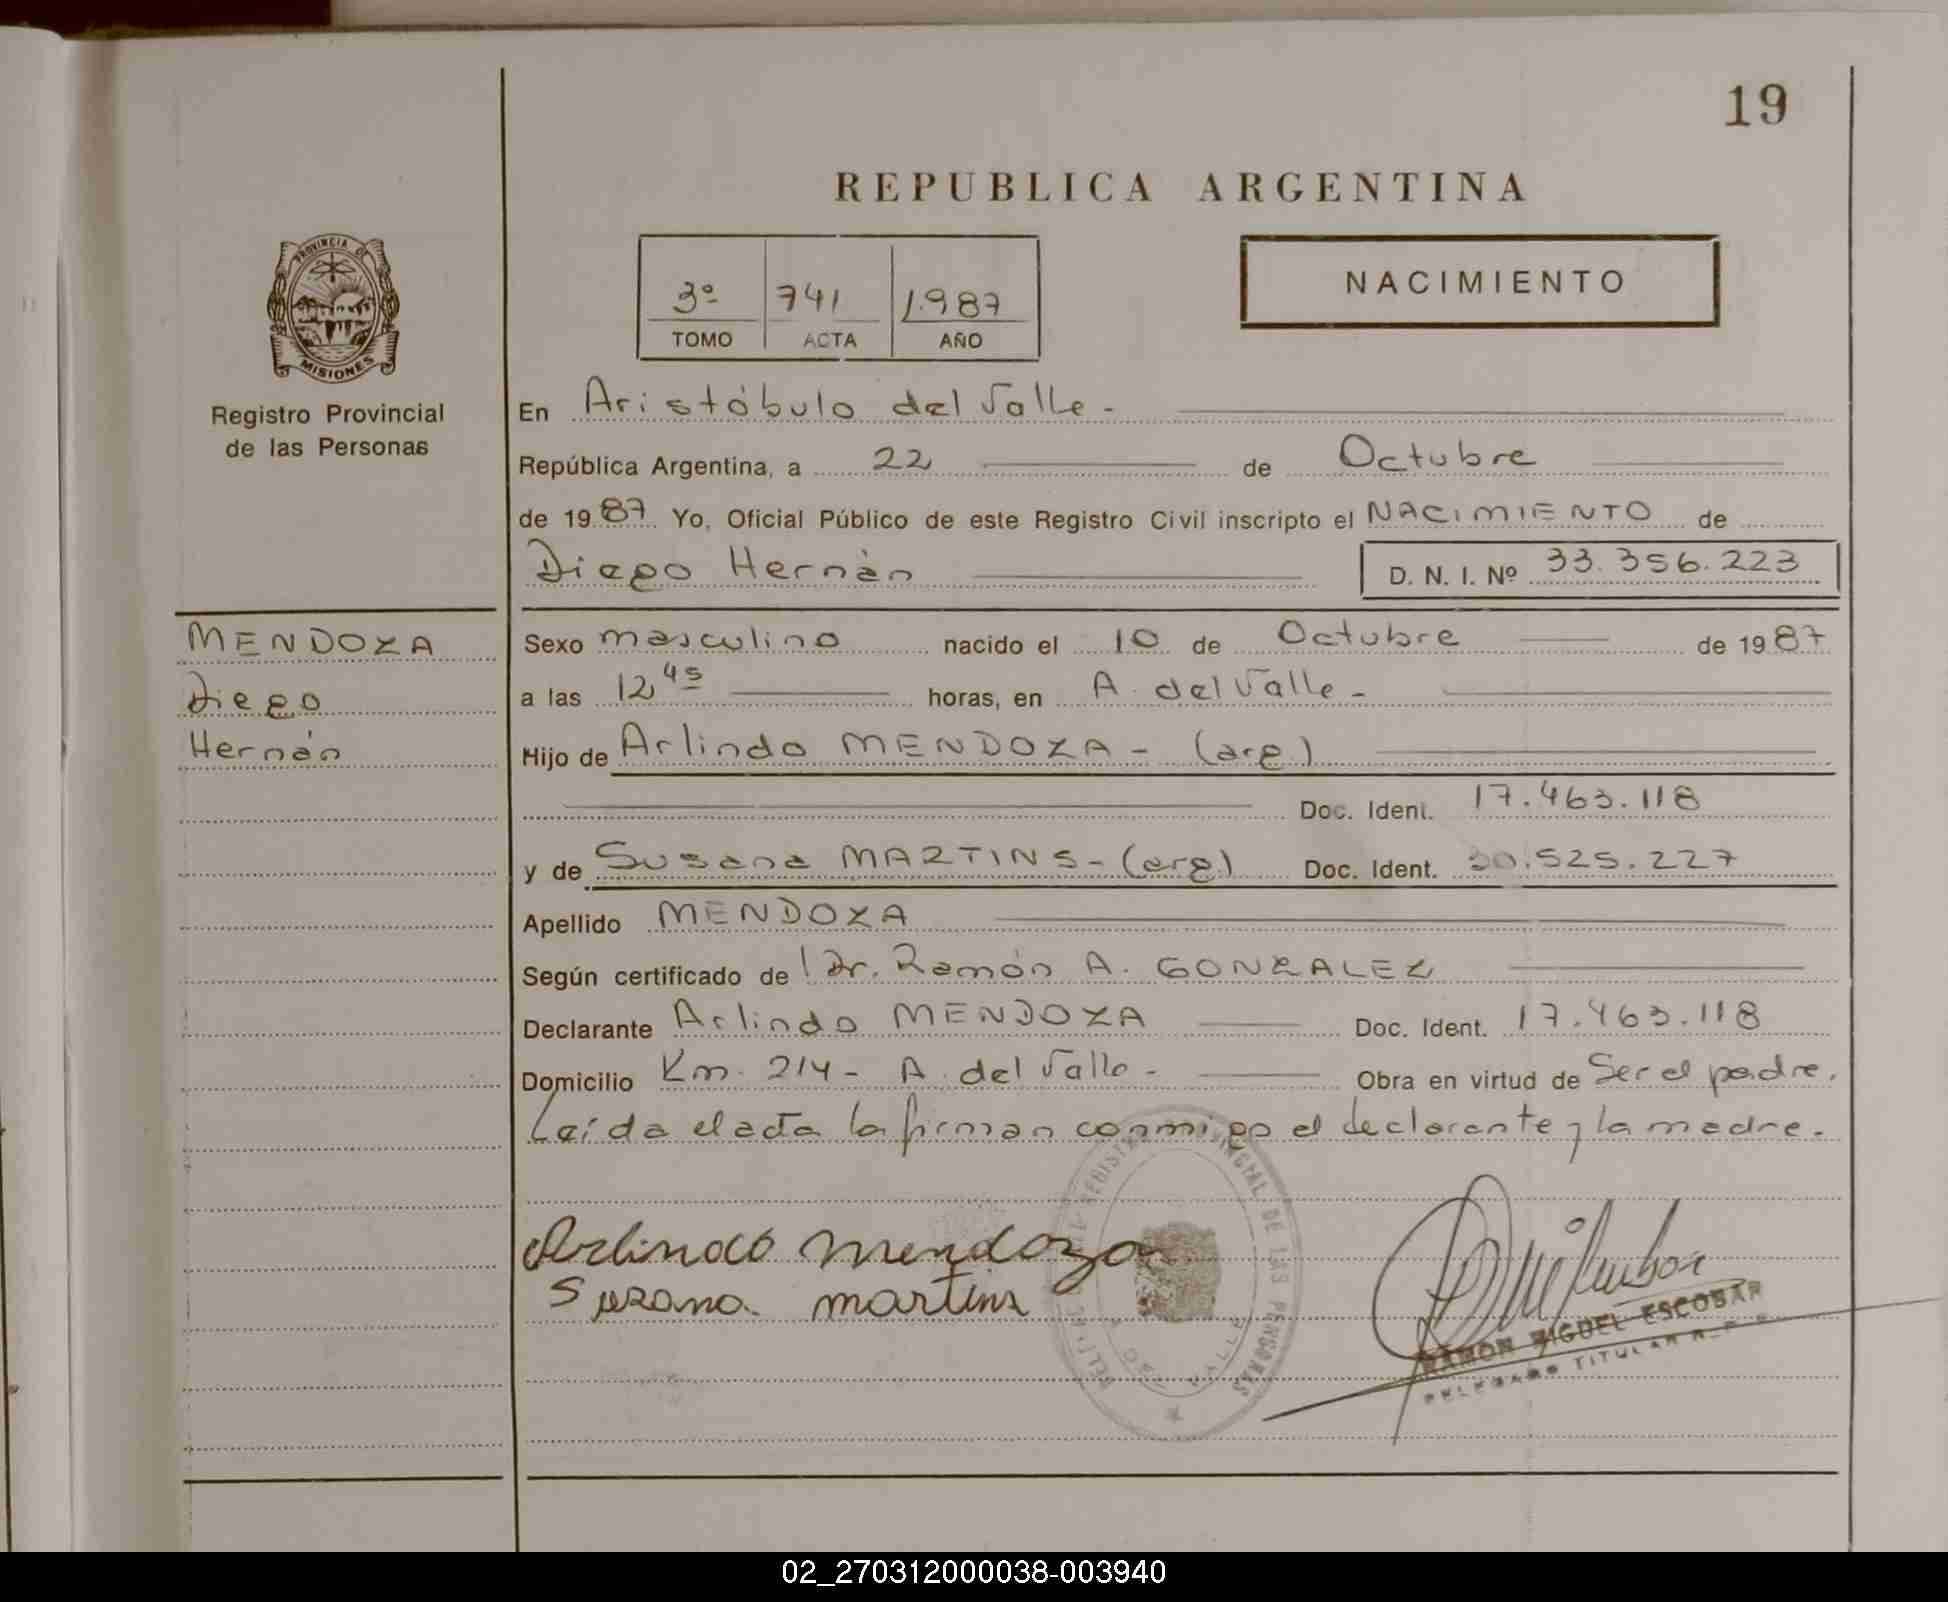 19
REPUBLICA ARGENTINA
PROVINCIA DE
MISIONES
Registro Provincial
de las Personas
3º 741 1.987
TOMO ACTA AÑO
NACIMIENTO
En Aristóbulo del Valle -
República Argentina, a 22 de Octubre
de 1987 Yo, Oficial Público de este Registro Civil inscripto el NACIMIENTO de
Diego Hernán D. N. I. Nº 33.356.223
MENDOZA
Diego
Hernán
Sexo masculino nacido el 10 de Octubre de 1987
a las 12 45 horas, en A. del Valle -
Hijo de Arlindo MENDOZA - (arg.)
Doc. Ident. 17.463.118
y de Susana MARTINS - (arg) Doc. Ident. .525.227
Apellido MENDOZA
Según certificado de Dr. Ramón A. GONZALEZ
Declarante Arlindo MENDOZA Doc. Ident. 17.463.118
Domicilio Km. 214 - A. del Valle - Obra en virtud de Ser el padre.
Leída el acta la firman conmigo el declarante y la madre.
Arlindo Mendoza
Suzana martins
RAMON MIGUEL ESCOBAR
DELEGADO TITULAR R. P. P.
REGISTRO PROVINCIAL DE LAS PERSONAS
VALLE
02_270312000038-003940